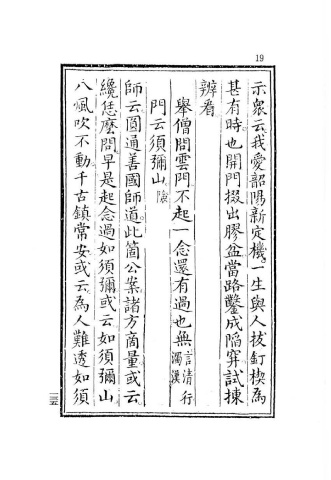 19
示衆云我愛韶陽新定機一生與人拔釘楔為
甚有時也開門掇出膠盆當路鑿成陷穽試揀
辨看
舉僧問雲門不起一念還有過也無言清行濁漢
門云須彌山險
師云圓通善國師道此箇公案諸方商量或云
纔恁麼問早是起念過如須彌或云如須彌山
八風吹不動千古鎮常安或云為人難透如須
一三五